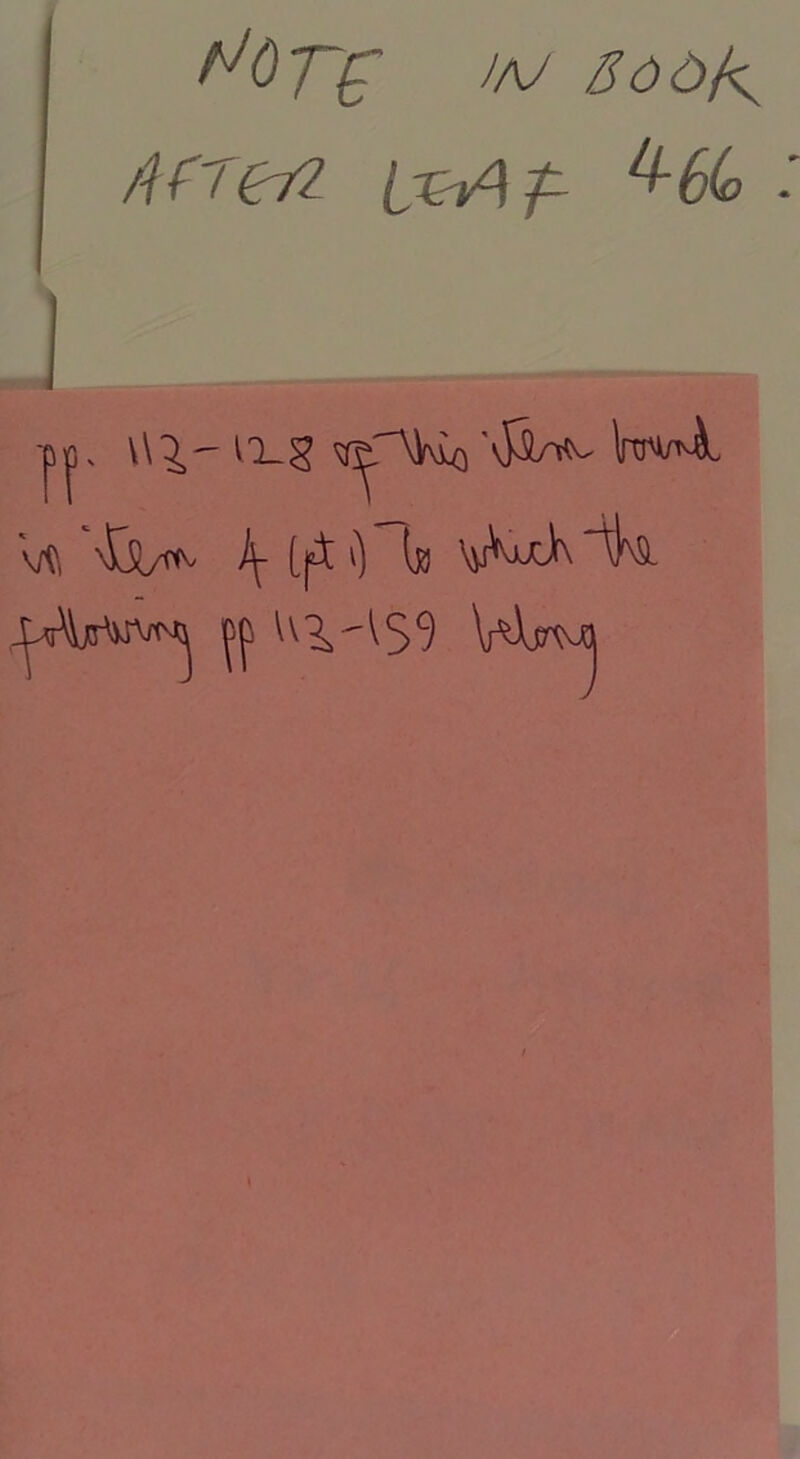 NOTE IN BOOK
AFTER LEAF 466 :
pp. 113-128 of this item bound
in item 4 (pt 1) to which the
following pp 113-159 belong